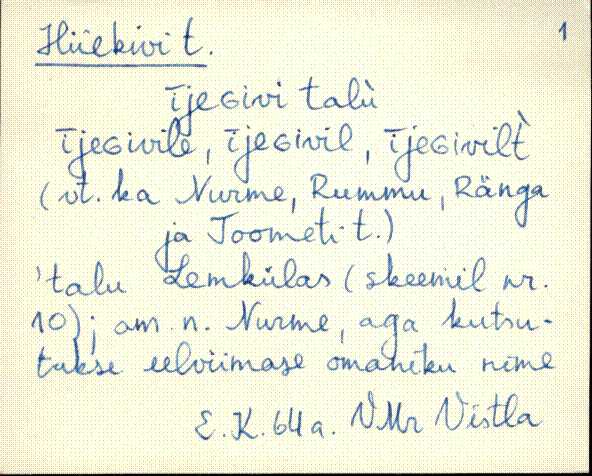 Hiiekivi t. 1
ījeGivi talù
ījeGivile, ījeGivil, ījeGivilt̀
(vt. ka Nurme, Rummu, Ränga
ja Toometi t.)
'talu Lemkülas (skeemil nr.
10); am. n. Nurme, aga kutsu-
takse eelviimase omaniku nime
E.K. 64 a. VMr Vistla